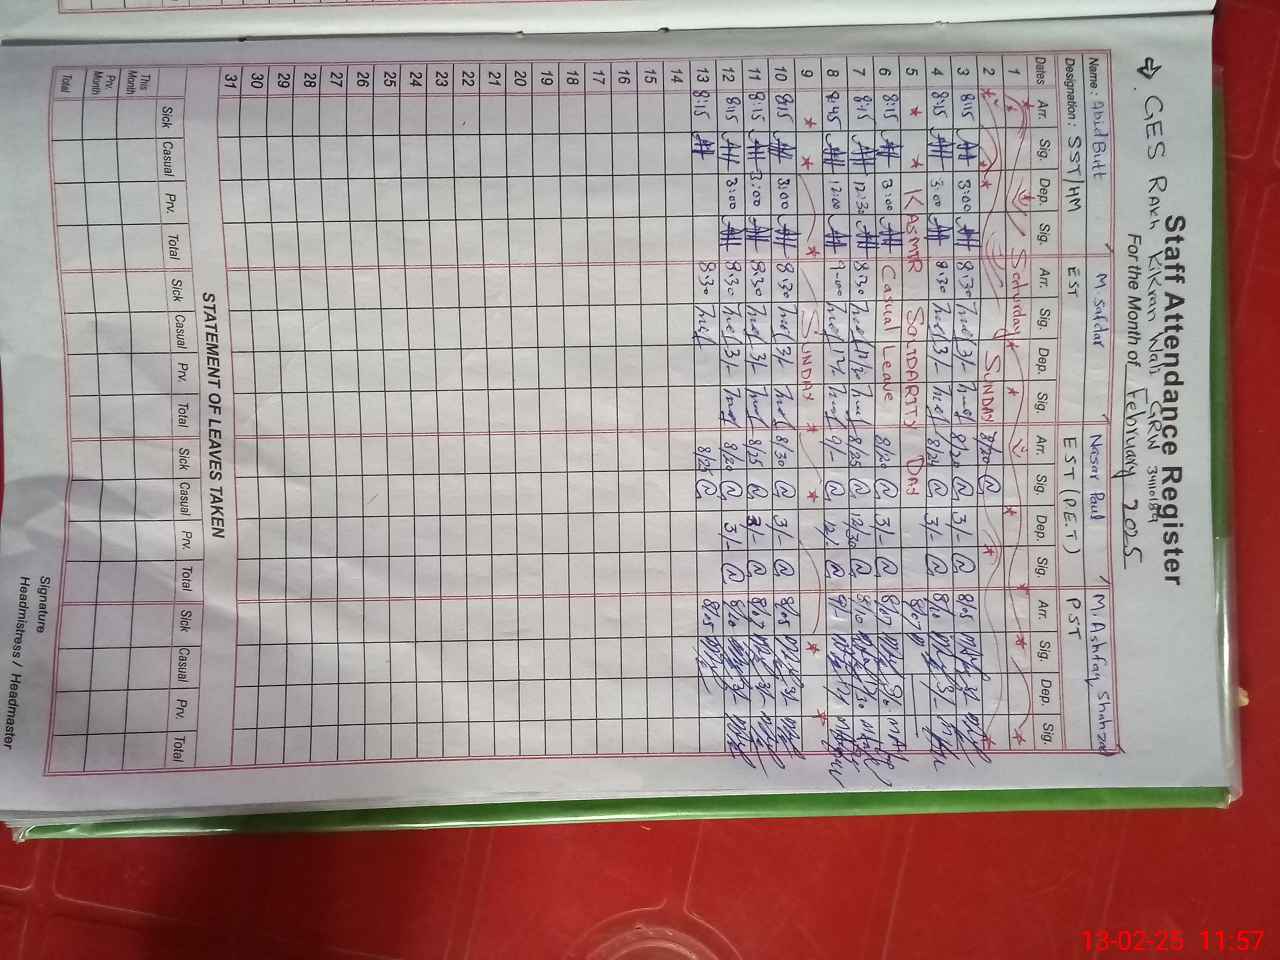 Staff Attendance Register
→ GES Rakh Kikran Wali GRW 34110189
For the Month of February 2025
Name: Abid Butt M. Safdar Nasar Paul M. Ashfaq Shahzad
Designation: SST/HM EST EST (P.E.T) PST
Dates Arr. Sig. Dep. Sig. Arr. Sig. Dep. Sig. Arr. Sig. Dep. Sig. Arr. Sig. Dep. Sig.
1 Saturday
2 SUNDAY 8/20
3 8:15 3:00 8:30 3/- 8/20 3/- 8/05 3/-
4 8:15 3:00 8:30 3/- 8/24 3/- 8/10 3/-
5 KASMIR SOLIDARITY DAY 8/07
6 8:15 3:00 Casual Leave 8/20 3/- 8/07
7 8:15 12:30 8:30 12/30 8/25 12/30 8/10
8 8:45 12:00 9:00 12/- 9/- 12/- 9/-
9 SUNDAY
10 8:15 3:00 8:30 3/- 8/30 3/- 8/05 3/-
11 8:15 3:00 8:30 3/- 8/25 3/- 8/07 3/-
12 8:15 3:00 8:30 3/- 8/20 3/- 8/10 3/-
13 8:15 8:30 8/25 8/05
14
15
16
17
18
19
20
21
22
23
24
25
26
27
28
29
30
31
STATEMENT OF LEAVES TAKEN
Sick Casual Prv. Total Sick Casual Prv. Total Sick Casual Prv. Total Sick Casual Prv. Total
This Month
Prv. Month
Total
Signature
Headmistress / Headmaster
13-02-25 11:57